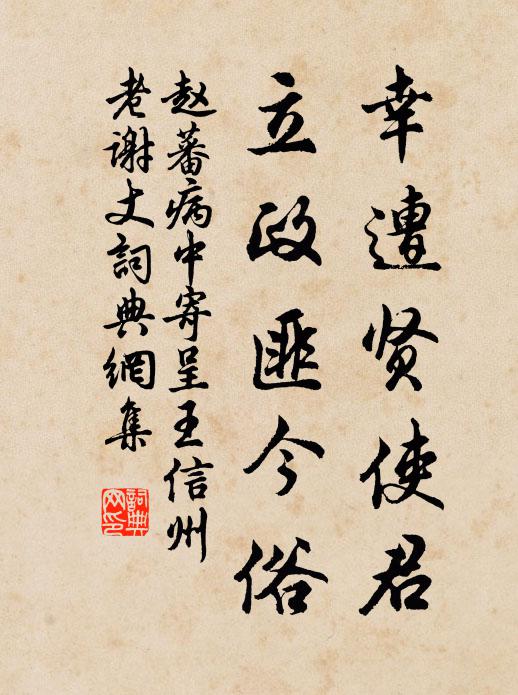 幸遭贤使君
立政匪今俗
赵蕃病中寄呈王信州
老谢丈詞典網集
詞典
网印